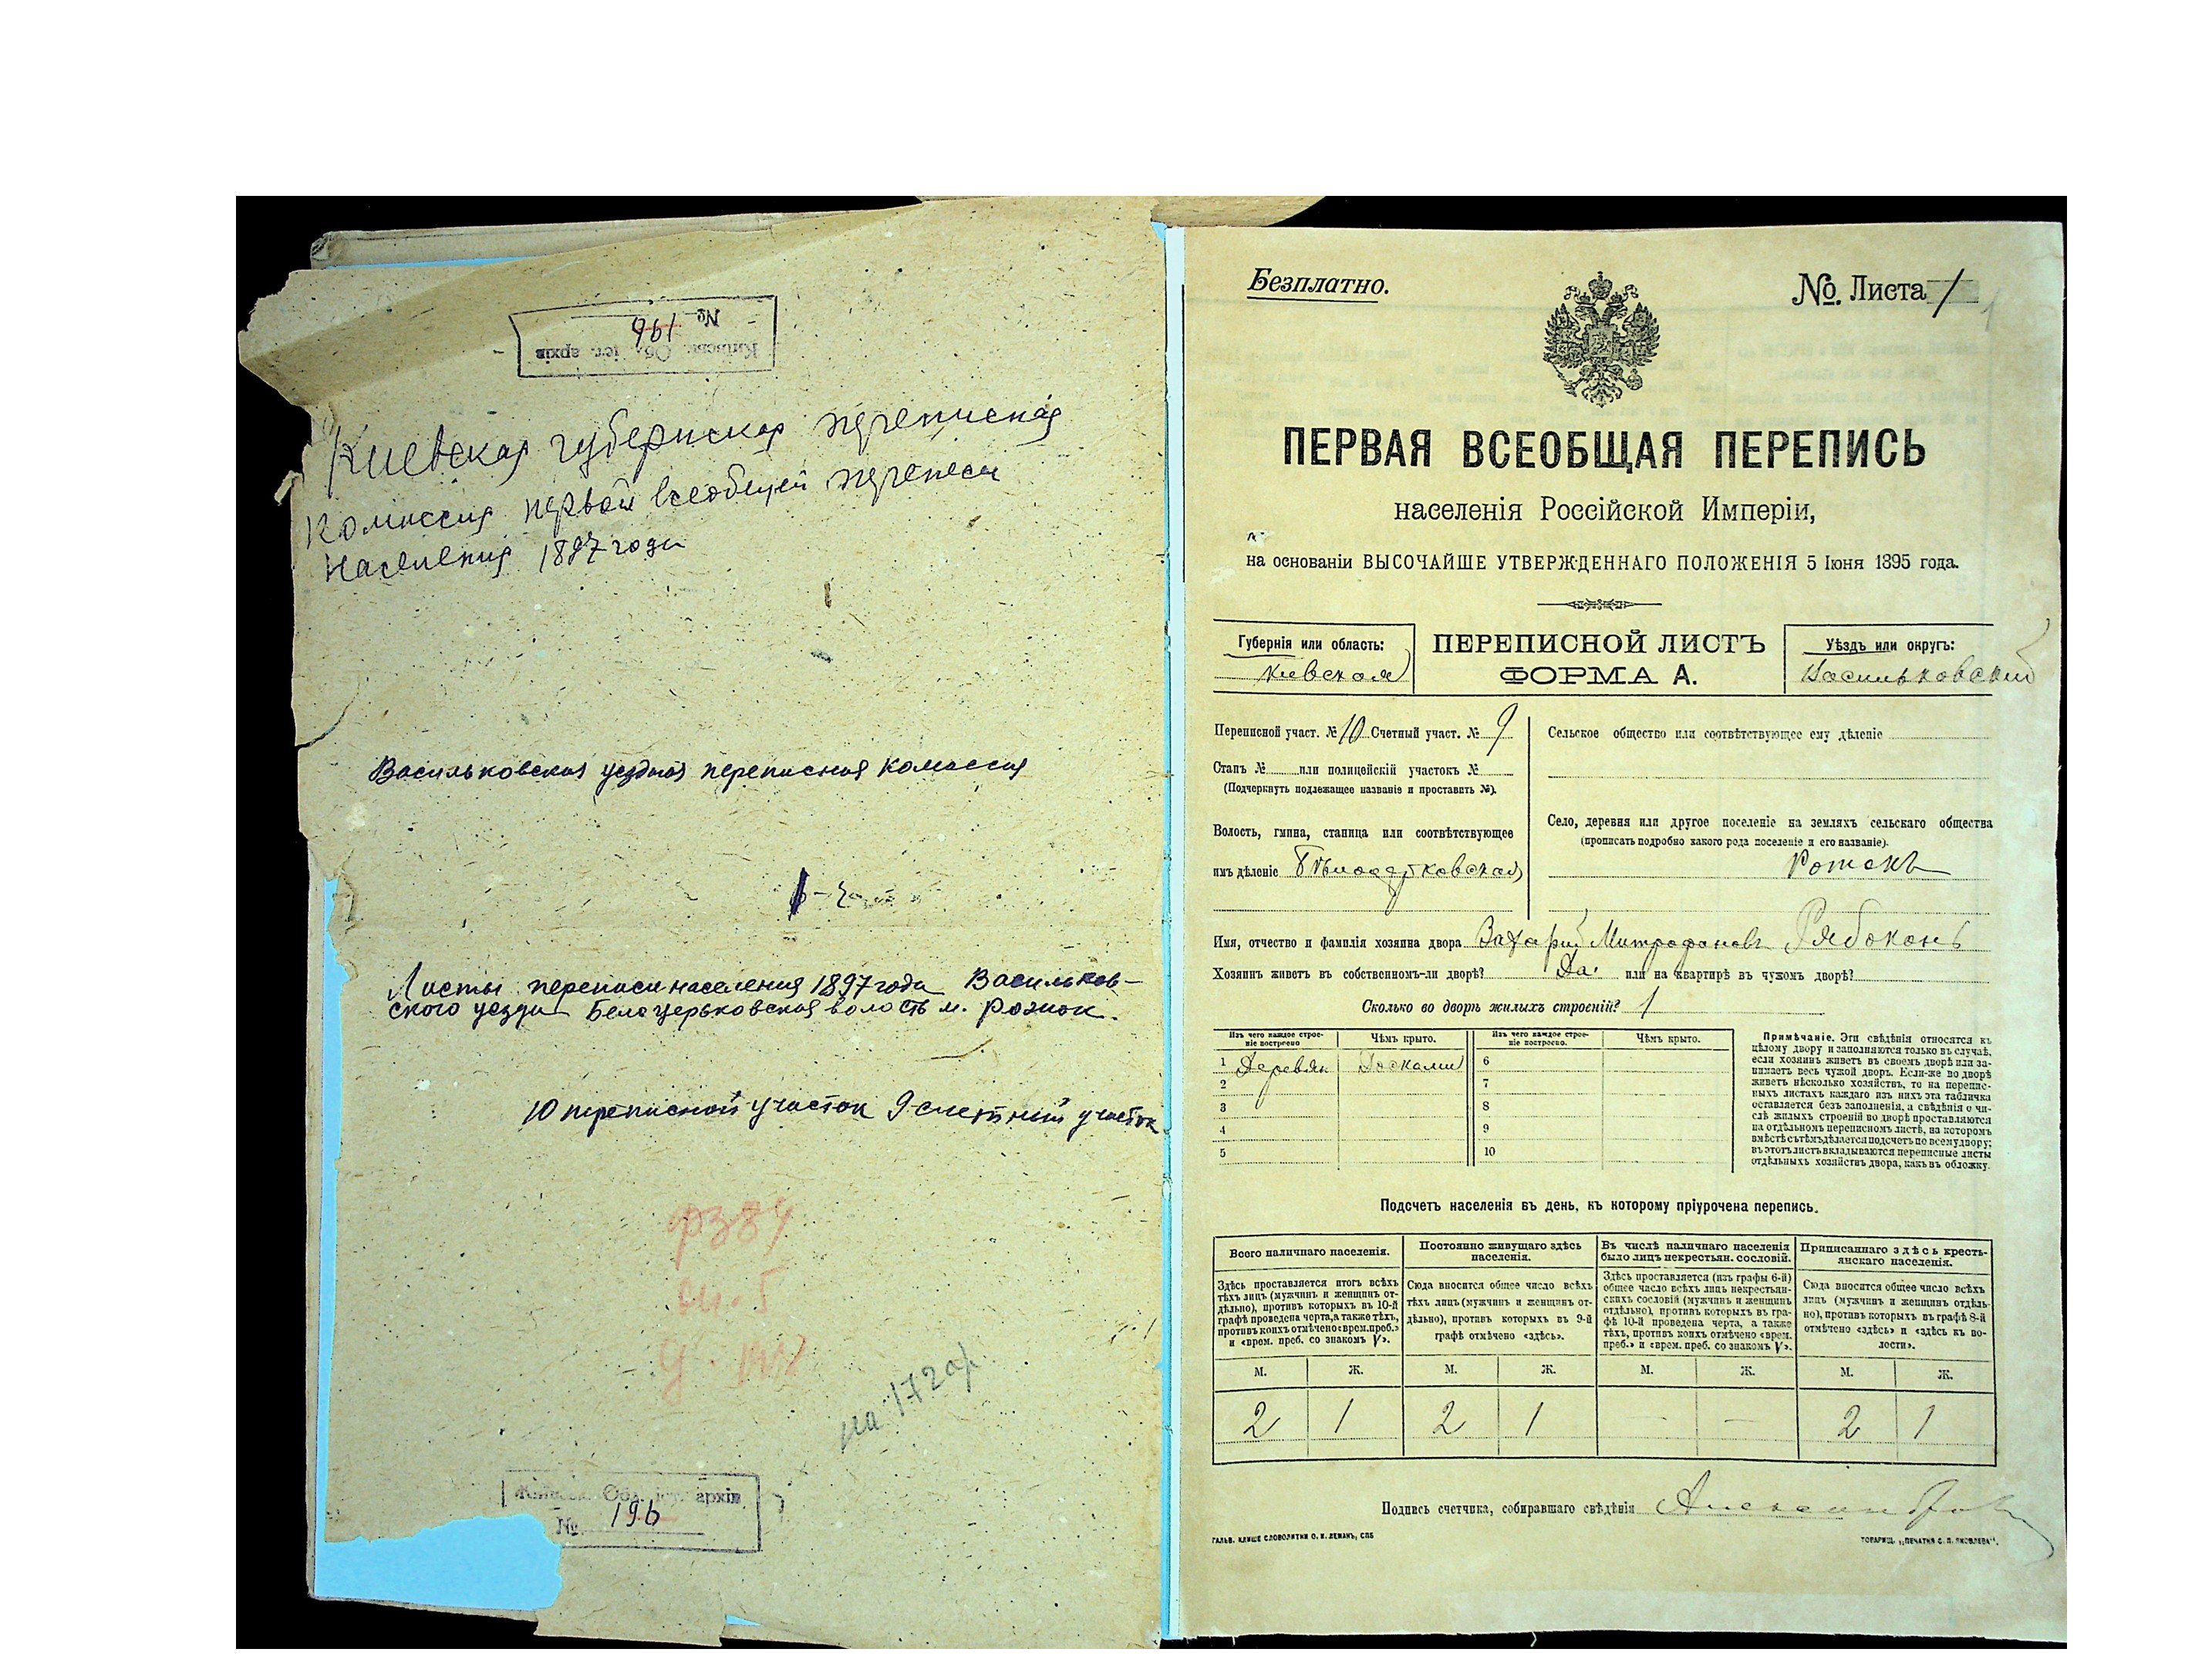 № 196
Київськ. Обл. іст. архів
Киевская губернская переписная
комиссия первой всеобщей переписи
населения 1897 года
Васильковская уездная переписная комиссия
Листы переписи населения 1897 года Васильков-
ского уезда Белоцерковская волость м. Рошок.
10 переписной участок 9 счетный участок
ф384
оп. 5
на 172 ар.
Київськ. Обл. іст. архів
№ 196
Безплатно.
№. Листа 1
ПЕРВАЯ ВСЕОБЩАЯ ПЕРЕПИСЬ
населенія Россійской Имперіи,
на основаніи ВЫСОЧАЙШЕ УТВЕРЖДЕННАГО ПОЛОЖЕНІЯ 5 Іюня 1895 года.
Губернія или область:
Киевская
ПЕРЕПИСНОЙ ЛИСТЪ
ФОРМА А.
Уѣздъ или округъ:
Васильковский
Переписной участ. № 10 Счетный участ. № 9
Станъ № или полицейскій участокъ №
(Подчеркнуть подлежащее названіе и проставить №).
Волость, гмина, станица или соотвѣтствующее
имъ дѣленіе Бѣлоцерковская
Сельское общество или соотвѣтствующее ему дѣленіе
Село, деревня или другое поселеніе на земляхъ сельскаго общества
(прописать подробно какого рода поселеніе и его названіе).
Ротокъ
Имя, отчество и фамилія хозяина двора Захарій Митрофановъ Рябоконь
Хозяинъ живетъ въ собственномъ-ли дворѣ? Да. или на квартирѣ въ чужомъ дворѣ?
Сколько во дворѣ жилыхъ строеній? 1
Изъ чего каждое строе-
ніе построено
Чѣмъ крыто.
Изъ чего каждое строе-
ніе построено.
Чѣмъ крыто.
1 Деревян Досками 6
2 7
3 8
4 9
5 10
Примѣчаніе. Эти свѣдѣнія относятся къ
цѣлому двору и заполняются только въ случаѣ,
если хозяинъ живетъ въ своемъ дворѣ или за-
нимаетъ весь чужой дворъ. Если-же во дворѣ
живетъ нѣсколько хозяйствъ, то на перепис-
ныхъ листахъ каждаго изъ нихъ эта табличка
оставляется безъ заполненія, а свѣдѣнія о чи-
слѣ жилыхъ строеній во дворѣ проставляются
на отдѣльномъ переписномъ листѣ, на которомъ
вмѣстѣ съ тѣмъ дѣлается подсчетъ по всему двору;
въ этотъ листъ вкладываются переписные листы
отдѣльныхъ хозяйствъ двора, какъ въ обложку.
Подсчетъ населенія въ день, къ которому пріурочена перепись.
Всего наличнаго населенія.
Здѣсь проставляется итогъ всѣхъ
тѣхъ лицъ (мужчинъ и женщинъ от-
дѣльно), противъ которыхъ въ 10-й
графѣ проведена черта, а также тѣхъ,
противъ коихъ отмѣчено «врем. преб.»
и «врем. преб. со знакомъ V».
Постоянно живущаго здѣсь
населенія.
Сюда вносится общее число всѣхъ
тѣхъ лицъ (мужчинъ и женщинъ от-
дѣльно), противъ которыхъ въ 9-й
графѣ отмѣчено «здѣсь».
Въ числѣ наличнаго населенія
было лицъ некрестьян. сословій.
Здѣсь проставляется (изъ графы 6-й)
общее число всѣхъ лицъ некрестьян-
скихъ сословій (мужчинъ и женщинъ
отдѣльно), противъ которыхъ въ гра-
фѣ 10-й проведена черта, а также
тѣхъ, противъ коихъ отмѣчено «врем.
преб.» и «врем. преб. со знакомъ V».
Приписаннаго здѣсь кресть-
янскаго населенія.
Сюда вносится общее число всѣхъ
лицъ (мужчинъ и женщинъ отдѣль-
но), противъ которыхъ въ графѣ 8-й
отмѣчено «здѣсь» и «здѣсь въ во-
лости».
М. Ж. М. Ж. М. Ж. М. Ж.
2 1 2 1 — — 2 1
Подпись счетчика, собиравшаго свѣдѣнія
ГАЛЬВ. КЛИШЕ СЛОВОЛИТНИ О. И. ЛЕМАНЪ, СПБ
ТОВАРИЩ. „ПЕЧАТНЯ С. П. ЯКОВЛЕВА“.